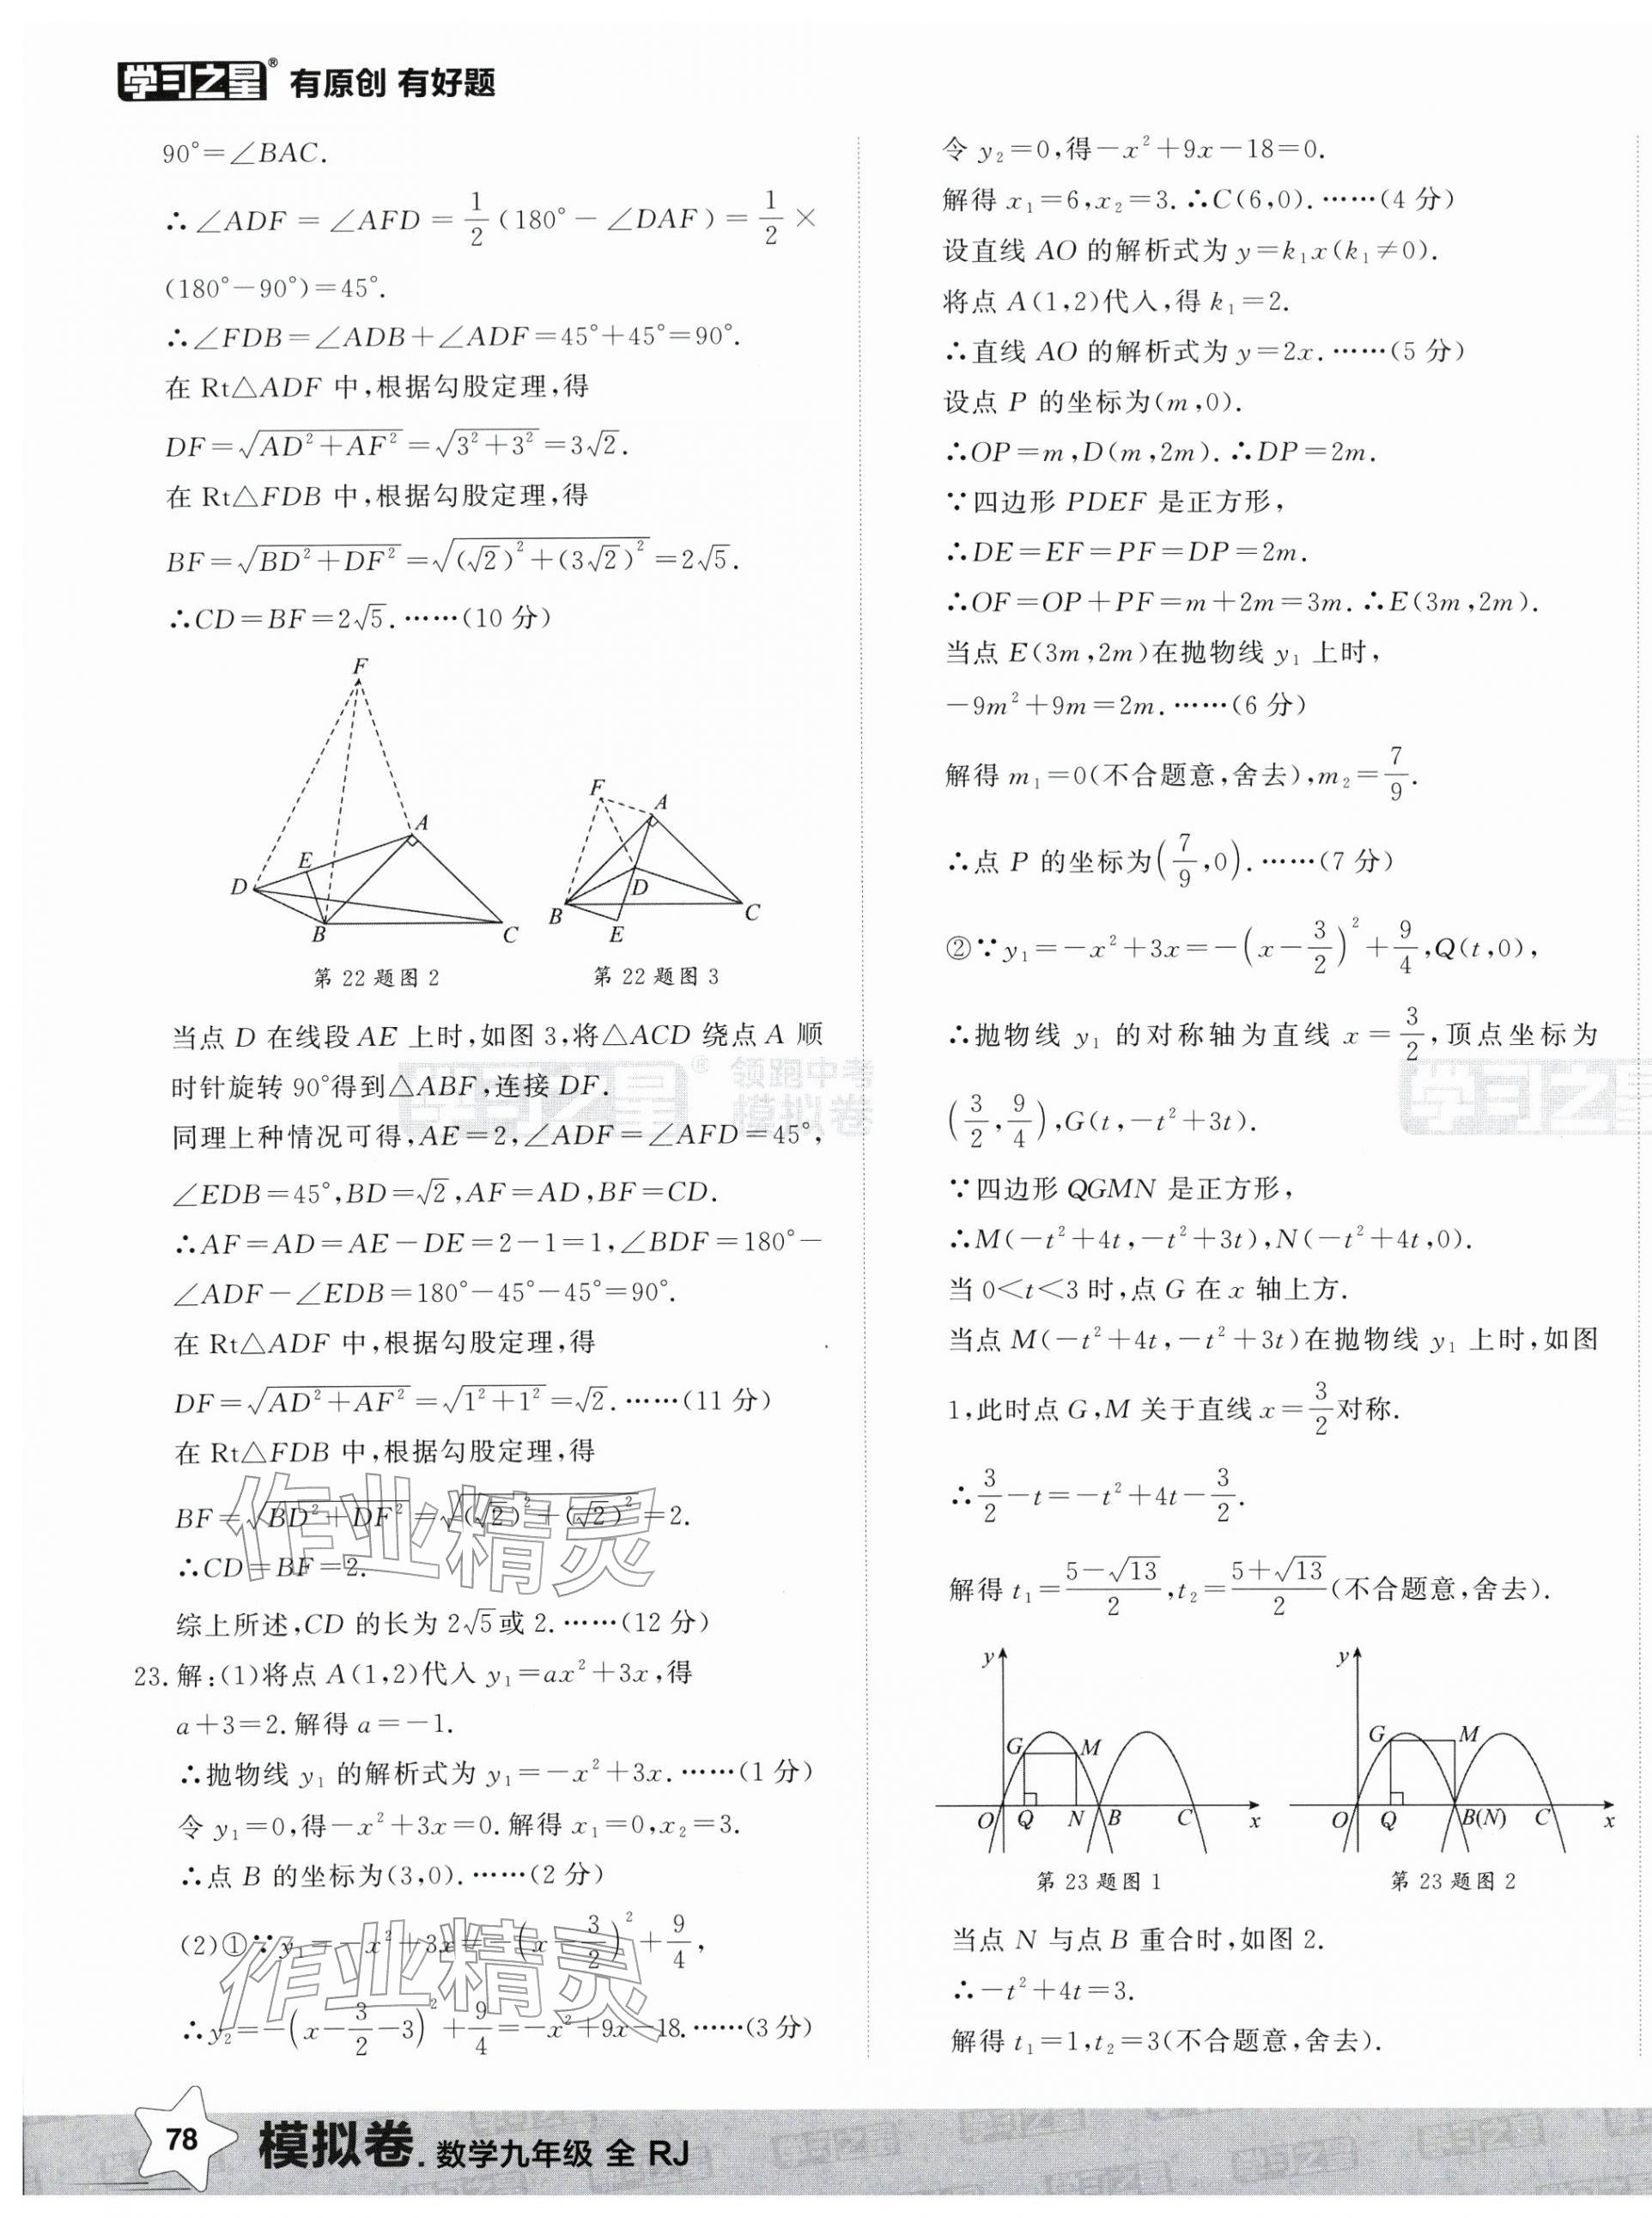 学习之星® 有原创 有好题
90°=∠BAC.
∴∠ADF=∠AFD=1/2(180°-∠DAF)=1/2×
(180°-90°)=45°.
∴∠FDB=∠ADB+∠ADF=45°+45°=90°.
在 Rt△ADF 中,根据勾股定理,得
DF=√(AD²+AF²)=√(3²+3²)=3√2.
在 Rt△FDB 中,根据勾股定理,得
BF=√(BD²+DF²)=√((√2)²+(3√2)²)=2√5.
∴CD=BF=2√5.……(10 分)
F
A
E
D
B
C
第 22 题图 2
F
A
D
B
E
C
第 22 题图 3
当点 D 在线段 AE 上时,如图 3,将△ACD 绕点 A 顺
时针旋转 90°得到△ABF,连接 DF.
同理上种情况可得,AE=2,∠ADF=∠AFD=45°,
∠EDB=45°,BD=√2,AF=AD,BF=CD.
∴AF=AD=AE-DE=2-1=1,∠BDF=180°-
∠ADF-∠EDB=180°-45°-45°=90°.
在 Rt△ADF 中,根据勾股定理,得
DF=√(AD²+AF²)=√(1²+1²)=√2.……(11 分)
在 Rt△FDB 中,根据勾股定理,得
BF=√(BD²+DF²)=√((√2)²+(√2)²)=2.
∴CD=BF=2.
综上所述,CD 的长为 2√5或 2.……(12 分)
23.解:(1)将点 A(1,2)代入 y₁=ax²+3x,得
a+3=2.解得 a=-1.
∴抛物线 y₁ 的解析式为 y₁=-x²+3x.……(1 分)
令 y₁=0,得-x²+3x=0.解得 x₁=0,x₂=3.
∴点 B 的坐标为(3,0).……(2 分)
(2)①∵y₁=-x²+3x=-(x-3/2)²+9/4,
∴y₂=-(x-3/2-3)²+9/4=-x²+9x-18.……(3 分)
令 y₂=0,得-x²+9x-18=0.
解得 x₁=6,x₂=3.∴C(6,0).……(4 分)
设直线 AO 的解析式为 y=k₁x(k₁≠0).
将点 A(1,2)代入,得 k₁=2.
∴直线 AO 的解析式为 y=2x.……(5 分)
设点 P 的坐标为(m,0).
∴OP=m,D(m,2m).∴DP=2m.
∵四边形 PDEF 是正方形,
∴DE=EF=PF=DP=2m.
∴OF=OP+PF=m+2m=3m.∴E(3m,2m).
当点 E(3m,2m)在抛物线 y₁ 上时,
-9m²+9m=2m.……(6 分)
解得 m₁=0(不合题意,舍去),m₂=7/9.
∴点 P 的坐标为(7/9,0).……(7 分)
②∵y₁=-x²+3x=-(x-3/2)²+9/4,Q(t,0),
∴抛物线 y₁ 的对称轴为直线 x=3/2,顶点坐标为
(3/2,9/4),G(t,-t²+3t).
∵四边形 QGMN 是正方形,
∴M(-t²+4t,-t²+3t),N(-t²+4t,0).
当 0<t<3 时,点 G 在 x 轴上方.
当点 M(-t²+4t,-t²+3t)在抛物线 y₁ 上时,如图
1,此时点 G,M 关于直线 x=3/2对称.
∴3/2-t=-t²+4t-3/2.
解得 t₁=(5-√13)/2,t₂=(5+√13)/2(不合题意,舍去).
y
G M
O Q N B C x
第 23 题图 1
y
G M
O Q B(N) C x
第 23 题图 2
当点 N 与点 B 重合时,如图 2.
∴-t²+4t=3.
解得 t₁=1,t₂=3(不合题意,舍去).
学习之星® 领跑中考
模拟卷
学习之星
作业精灵
作业精灵
78 模拟卷.数学九年级 全 RJ